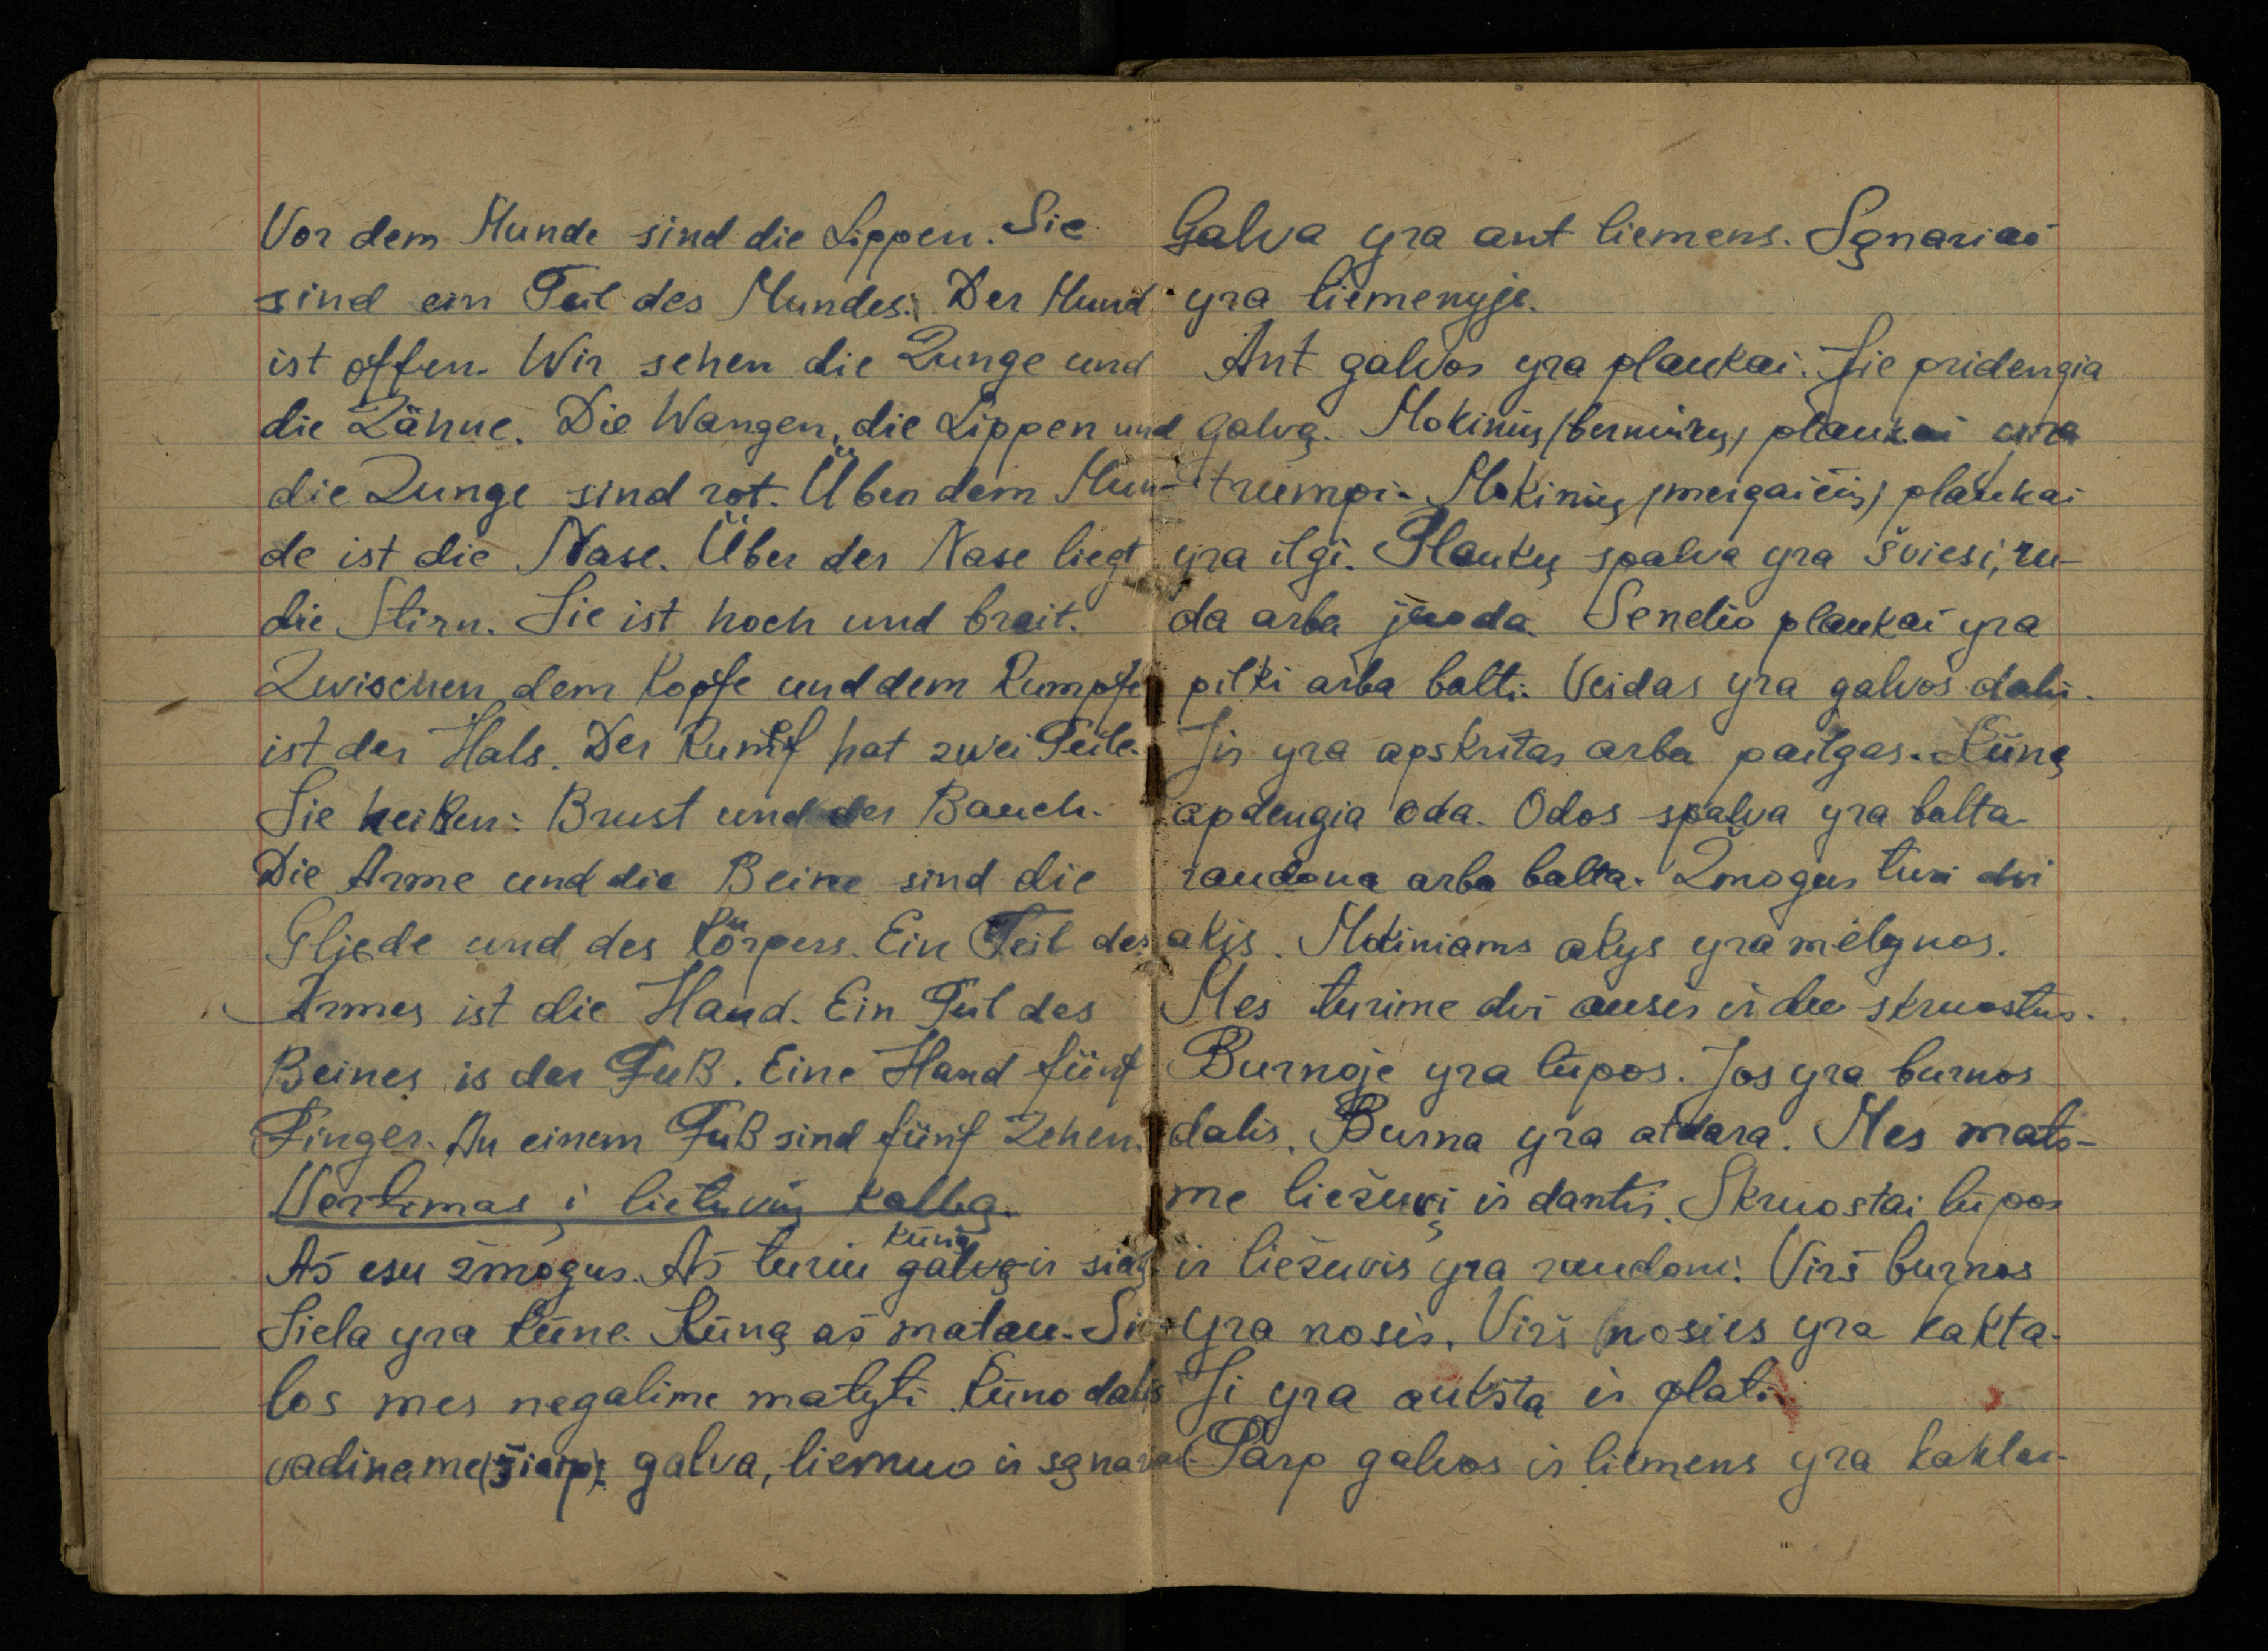 Vor dem Munde sind die Lippen. Sie
sind ein Teil des Mundes. Der Mund
ist offen. Wir sehen die Zunge und
die Zähne. Die Wangen, die Lippen und
die Zunge sind rot. Über dem Mun-
de ist die Nase. Über der Nase liegt
die Stirn. Sie ist hoch und breit.
Zwischen dem Kopfe und dem Rumpfe
ist der Hals. Der Rumpf hat zwei Teile.
Sie heißen: Brust und der Bauch.
Die Arme und die Beine sind die
Gliede und des Körpers. Ein Teil des
Armes ist die Hand. Ein Teil des
Beines is der Fuß. Eine Hand fünf
Finger. An einem Fuß sind fünf Zehen.
Vertimas į lietuvių kalbą.
Aš esu žmogus. Aš turiu galvą kūną ir sielą
Siela yra kūne. Kūną aš matau. Sie-
los mes negalime matyti. Kūno dalis
vadiname (šiaip): galva, liemuo ir sąnariai.
Galva yra ant liemens. Sąnariai
yra liemenyje.
Ant galvos yra plaukai. Jie pridengia
galvą. Mokinių (berniukų) plaukai yra
trumpi. Mokinių (mergaičių) plaukai
yra ilgi. Plaukų spalva yra šviesi, ru-
da arba juoda. Senelio plaukai yra
pilki arba balti. Veidas yra galvos dalis.
Jis yra apskritas arba pailgas. Kūną
apdengia oda. Odos spalva yra balta
raudona arba balta. Žmogus turi dvi
akis. Mokiniams akys yra mėlynos.
Mes turime dvi ausis ir du skruostus.
Burnoje yra lūpos. Jos yra burnos
dalis. Burna yra atdara. Mes mato-
me liežuvį ir dantis. Skruostai lūpos
ir liežuvis yra raudoni. Virš burnos
yra nosis. Virš nosies yra kakta.
Ji yra aukšta ir plati.
Tarp galvos ir liemens yra kaklas.